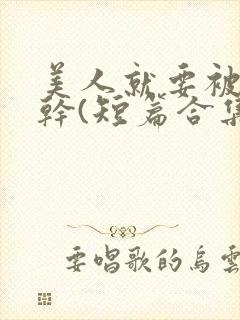 美人就要被
幹(短篇合集
要唱歌的烏雲